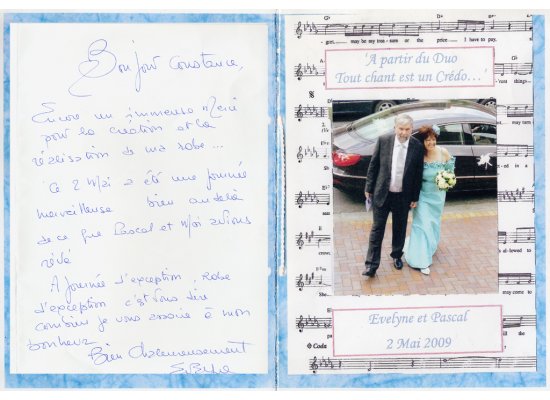 Bonjour Constance,
Encore un immense Merci
pour la création et la
réalisation de ma robe...
Ce 2 Mai a été une journée
merveilleuse bien au delà
de ce que Pascal et Moi avions
rêvé
A journée d'exception, Robe
d'exception c'est vous dire
combien je vous associe à mon
bonheur
Bien Chaleureusement
'A partir du Duo
Tout chant est un Crédo...'
price I have to pay,
right things
may turn
is a
allowed to
may come to
Coda
Evelyne et Pascal
2 Mai 2009